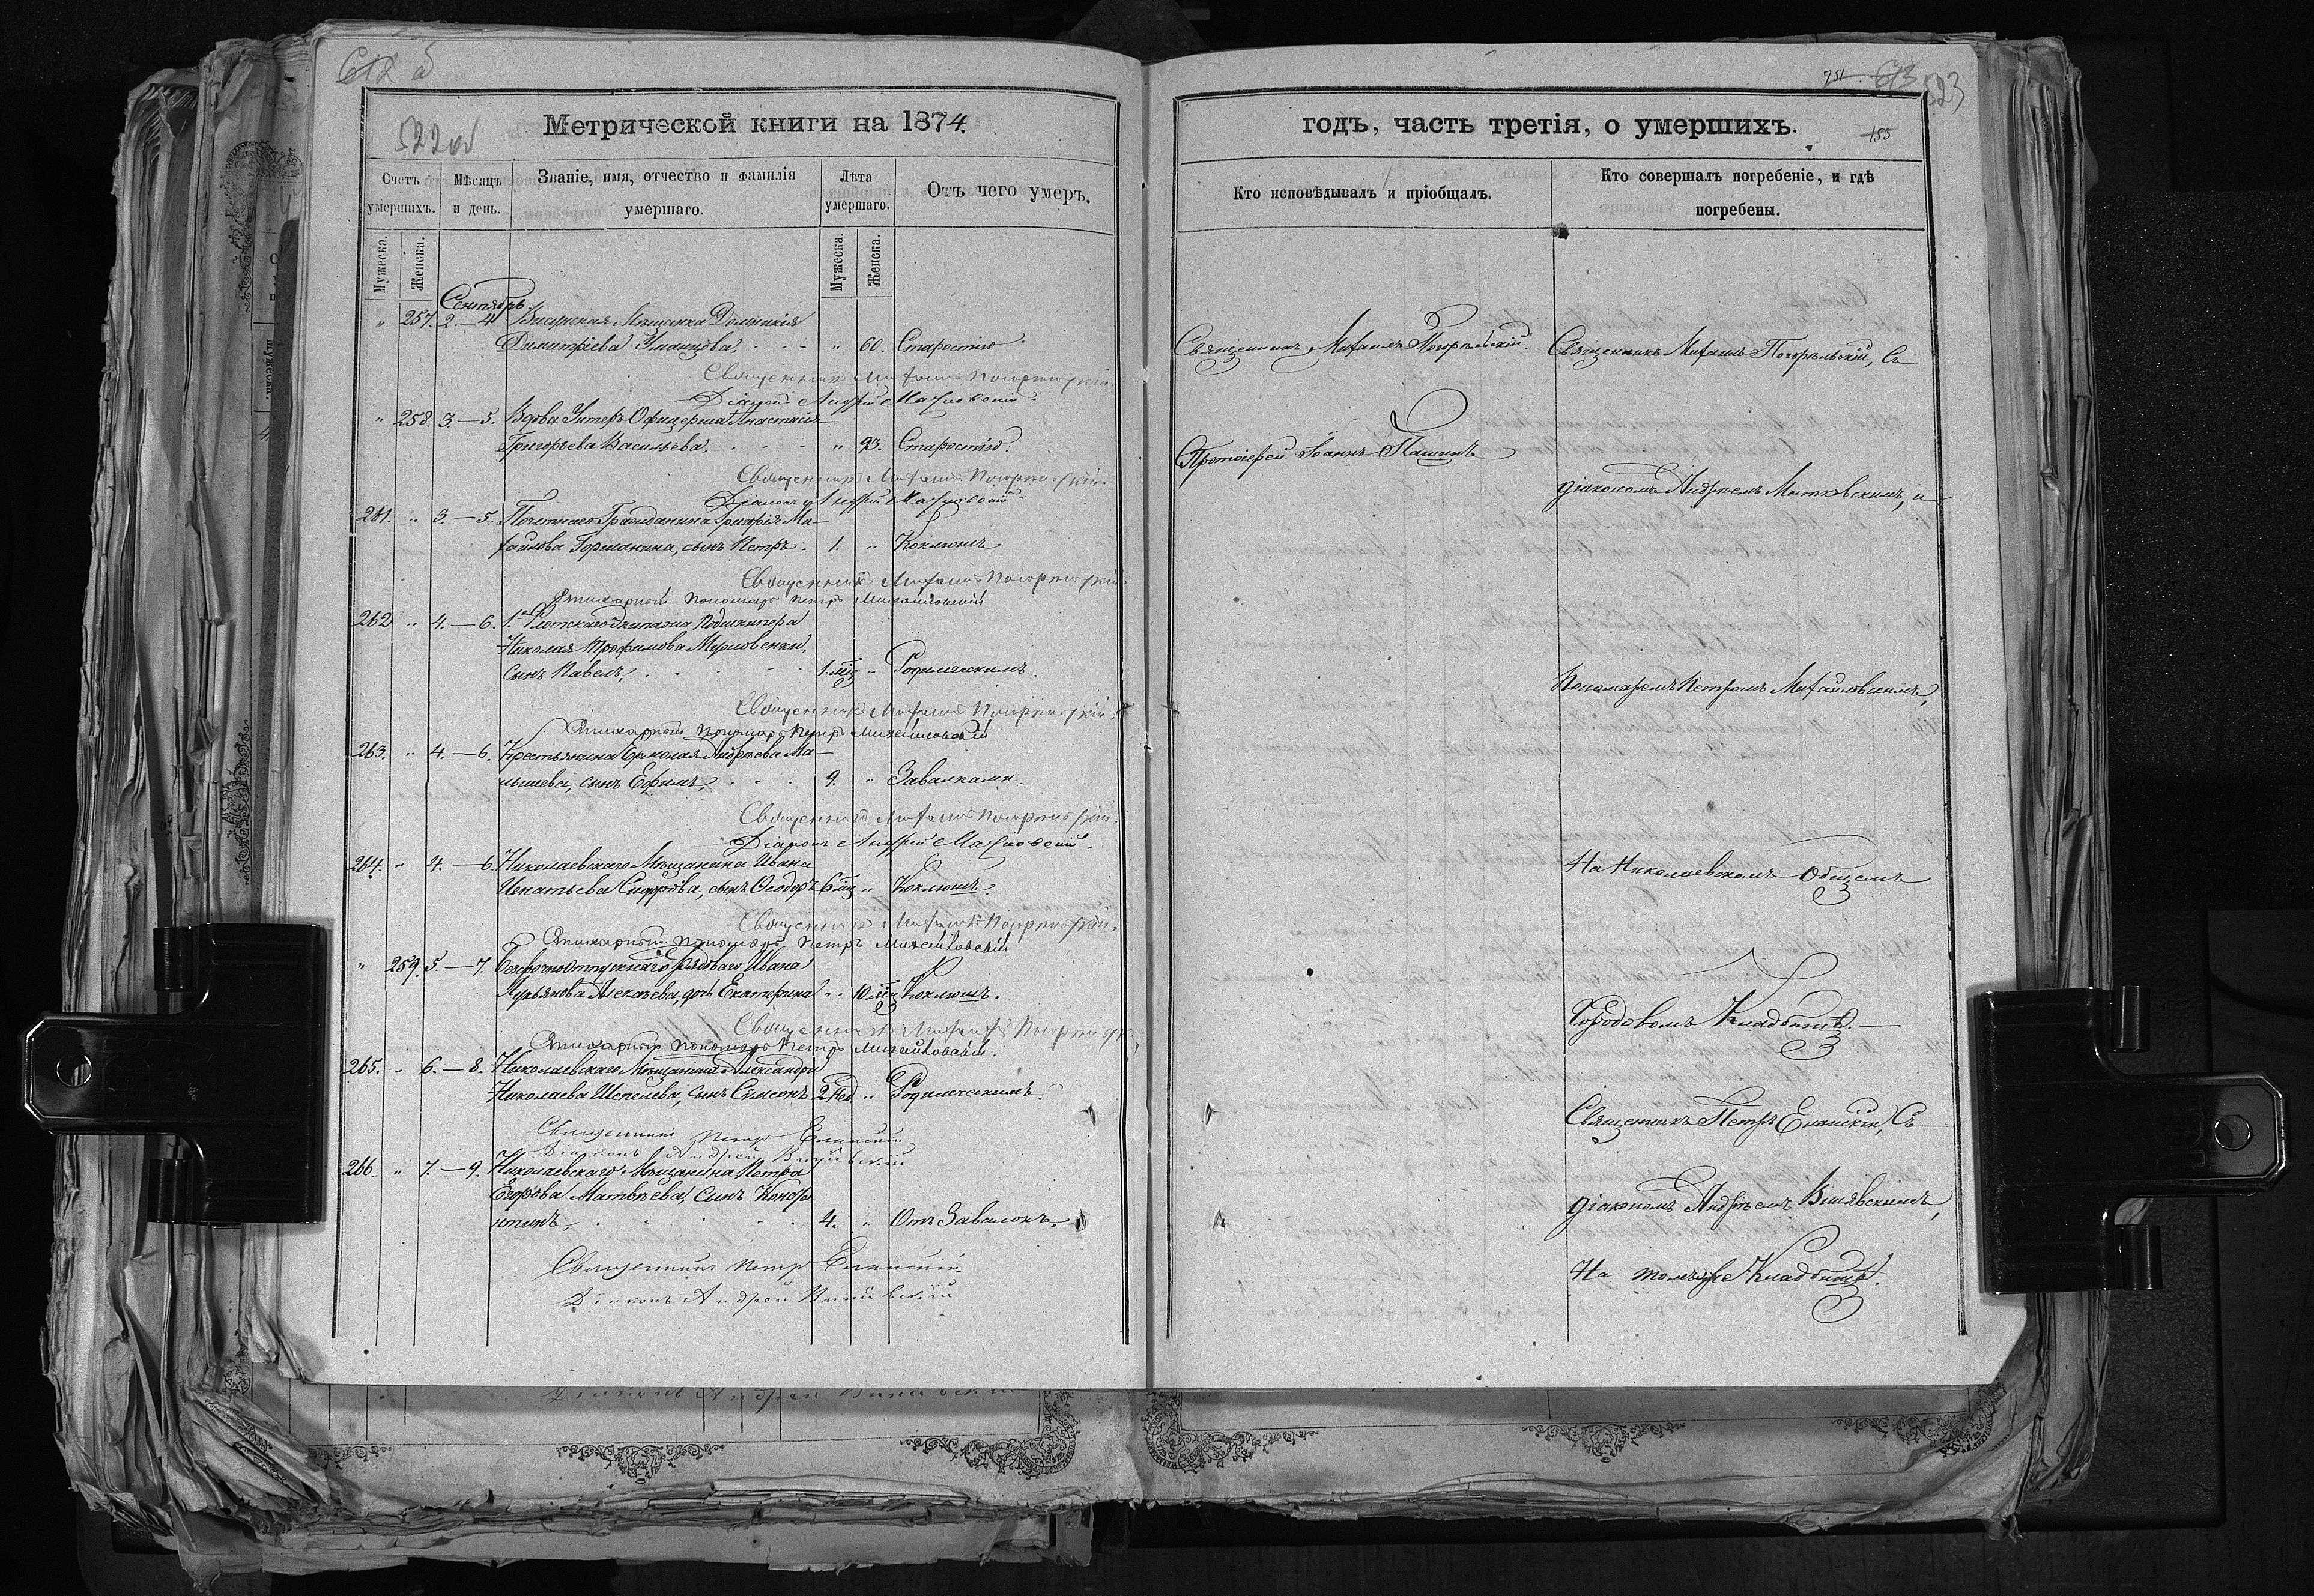 612 об
522 об
Метрической книги на 1874.
Счетъ умершихъ.
Мѣсяцъ и день.
Званіе, имя, отчество и фамилія умершаго.
Лѣта умершаго.
Отъ чего умеръ.
Мужеска.
Женска.
Мужеска.
Женска.
Сентябрь
" 257. 2.—4 Мѣщанка Домникія
Димитріева " 60. Старостію.
Священникъ Михаилъ Погорѣльскій.
Діаконъ Андрей
" 258. 3.—5. Вдова Унтеръ Офицерша Анастасія
Григорьева Васильева. " 93. Старостію.
Священникъ Михаилъ Погорѣльскій.
Діаконъ Андрей
261. " 3.—5. Почетнаго Гражданина Григорія Ми-
хайлова Горжанина, сынъ Петръ. 1. " Коклюшъ
Священникъ Михаилъ Погорѣльскій.
Стихарный пономарь Петръ Михайловскій
262 " 4.—6. 1го Флотскаго Экипажа Подшкипера
Николая Трофимова
сынъ Павелъ, 1. мѣц " Родимческимъ.
Священникъ Михаилъ Погорѣльскій.
Стихарный пономарь Петръ Михайловскій
263. " 4.—6. Крестьянина Ермолая Андреева Ма-
лышева, сынъ Ефимъ, 9. " Завалками.
Священникъ Михаилъ Погорѣльскій.
Діаконъ Андрей
264. " 4.—6. Николаевскаго Мѣщанина Ивана
Игнатьева Сидорова, сынъ Ѳеодоръ 6 мц " Коклюшъ.
Священникъ Михаилъ Погорѣльскій.
Стихарный пономарь Петръ Михайловскій
" 259. 5.—7. Безсрочноотпускнаго рядоваго Ивана
Лукьянова Алексѣева, дочь Екатерина " 10. мц Коклюшъ.
Священникъ Михаилъ Погорѣльскій.
Стихарный пономарь Петръ Михайловскій.
265. " 6.—8. Николаевскаго Мѣщанина Александра
Николаева Шепелева, сынъ Симеонъ 2 Нед " Родимческимъ.
Священникъ Петръ Еланскій
Діаконъ Андрей
266. " 7.—9. Николаевскаго Мѣщанина Петра
Егорова Матвѣева, сынъ Конста-
нтинъ, 4. " Отъ Завалокъ.
Священникъ Петръ Еланскій
Діаконъ Андрей
751 613
523
годъ, часть третія, о умершихъ.
185
Кто исповѣдывалъ и пріобщалъ.
Кто совершалъ погребеніе, и гдѣ погребены.
Священникъ Михаилъ Погорѣльскій.
Священникъ Михаилъ Погорѣльскій, Съ
Протоіерей Іоаннъ
діакономъ Андреемъ и
Пономаремъ Петромъ Михайловскимъ,
На Николаевскомъ Общемъ
Городовомъ Кладбищѣ.—
Священникъ Петръ Еланскій, Съ
діакономъ Андреемъ
На томъ же Кладбищѣ.